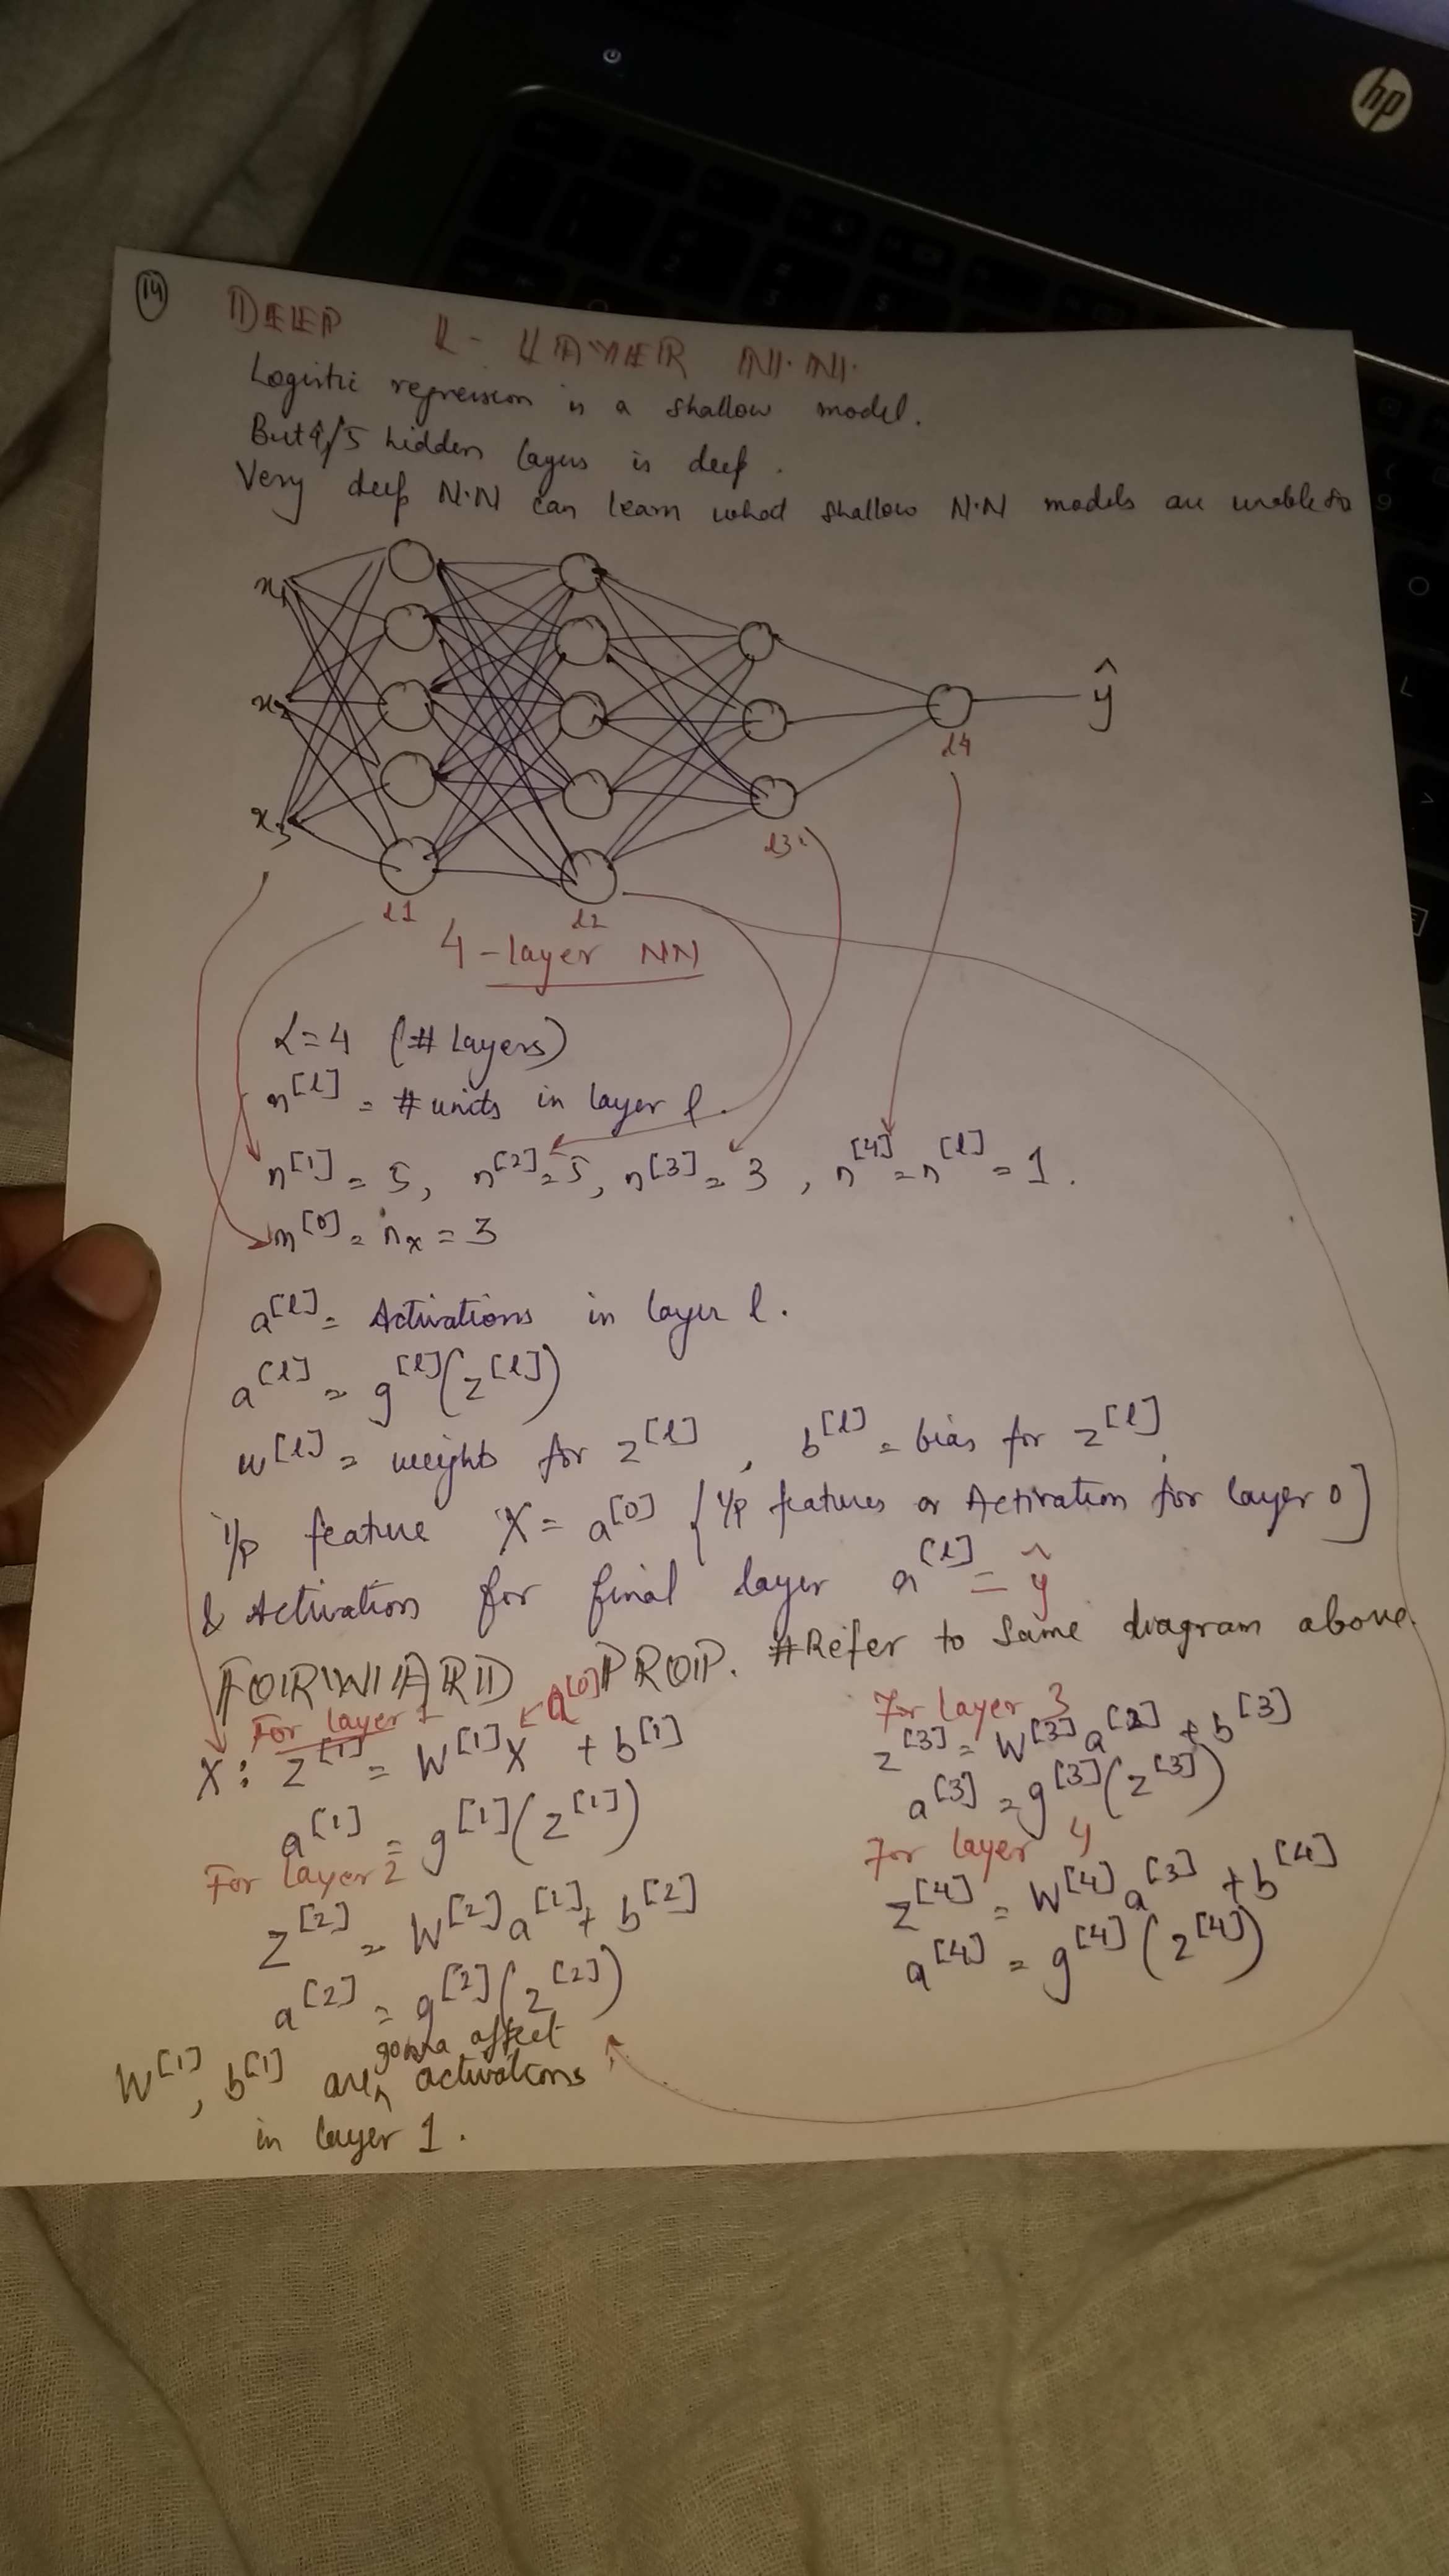 hp
14
DEEP L-LAYER N.N.
Logistic regression is a shallow model.
But 4/5 hidden layers is deep.
Very deep N.N can learn what shallow N.N models are unable to
x1
x2
x3
ŷ
l1
l2
l3
l4
4-layer NN
L=4 (# Layers)
n[l] = # units in layer l.
n[1] = 5, n[2] = 5, n[3] = 3, n[4] = n[l] = 1.
n[0] = nx = 3
a[l] = Activations in layer l.
a[l] = g[l](z[l])
w[l] = weights for z[l], b[l] = bias for z[l]
i/p feature X = a[0] {i/p features or Activation for layer 0]
& Activation for final layer a[l] = ŷ
FORWARD PROP. #Refer to same diagram above.
For layer 1
a[0]
X: z[1] = W[1]X + b[1]
a[1] = g[1](z[1])
For layer 2
z[2] = W[2]a[1] + b[2]
a[2] = g[2](z[2])
For layer 3
z[3] = W[3]a[2] + b[3]
a[3] = g[3](z[3])
For layer 4
z[4] = W[4]a[3] + b[4]
a[4] = g[4](z[4])
gonna affect
W[1], b[1] are activations
in layer 1.